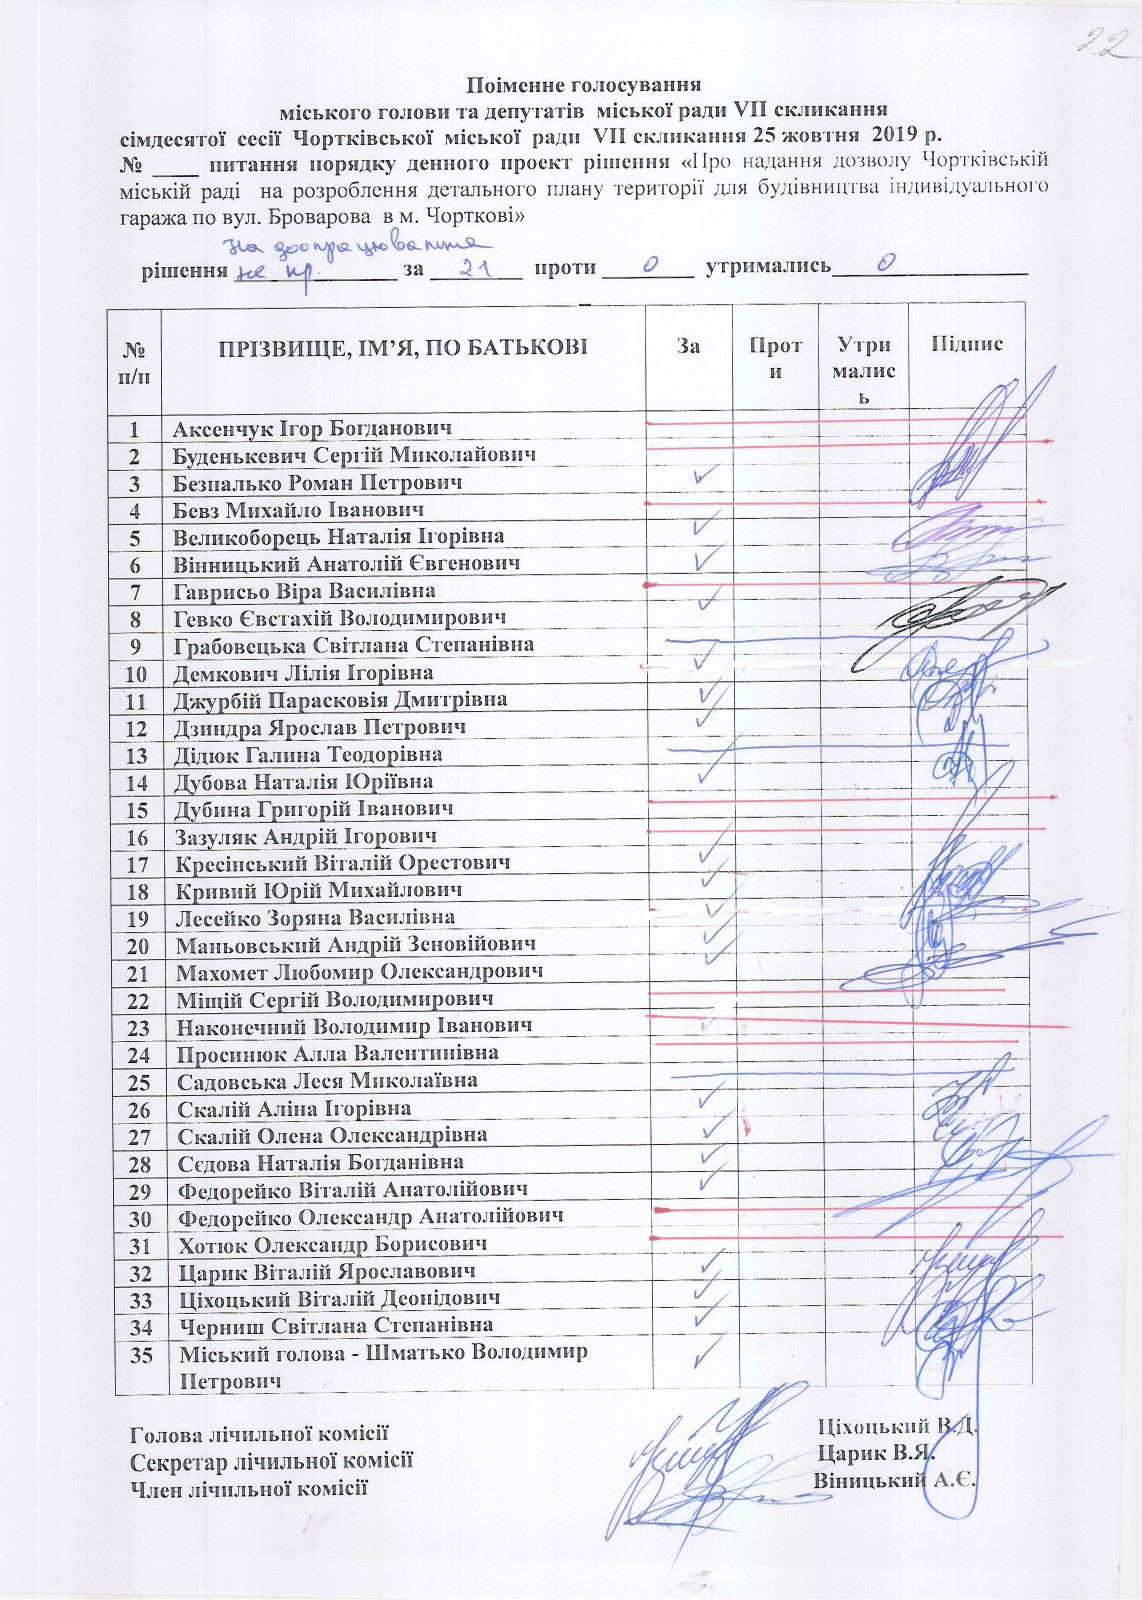 22
Поіменне голосування
міського голови та депутатів міської ради VII скликання
сімдесятої сесії Чортківської міської ради VII скликання 25 жовтня 2019 р.
№ ____ питання порядку денного проект рішення «Про надання дозволу Чортківській
міській раді на розроблення детального плану території для будівництва індивідуального
гаража по вул. Броварова в м. Чорткові»
На доопрацювання
рішення не пр. за 21 проти 0 утримались 0
№ п/п ПРІЗВИЩЕ, ІМ’Я, ПО БАТЬКОВІ За Проти Утрималиcь Підпис
1 Аксенчук Ігор Богданович
2 Буденькевич Сергій Миколайович
3 Безпалько Роман Петрович ✓
4 Бевз Михайло Іванович
5 Великоборець Наталія Ігорівна ✓
6 Вінницький Анатолій Євгенович ✓
7 Гаврисьо Віра Василівна
8 Гевко Євстахій Володимирович ✓
9 Грабовецька Світлана Степанівна
10 Демкович Лілія Ігорівна ✓
11 Джурбій Парасковія Дмитрівна ✓
12 Дзиндра Ярослав Петрович ✓
13 Дідюк Галина Теодорівна
14 Дубова Наталія Юріївна ✓
15 Дубина Григорій Іванович
16 Зазуляк Андрій Ігорович
17 Кресінський Віталій Орестович ✓
18 Кривий Юрій Михайлович ✓
19 Лесейко Зоряна Василівна ✓
20 Маньовський Андрій Зеновійович ✓
21 Махомет Любомир Олександрович ✓
22 Міщій Сергій Володимирович
23 Наконечний Володимир Іванович
24 Просинюк Алла Валентинівна
25 Садовська Леся Миколаївна
26 Скалій Аліна Ігорівна ✓
27 Скалій Олена Олександрівна ✓
28 Сєдова Наталія Богданівна ✓
29 Федорейко Віталій Анатолійович ✓
30 Федорейко Олександр Анатолійович
31 Хотюк Олександр Борисович
32 Царик Віталій Ярославович ✓
33 Ціхоцький Віталій Деонідович ✓
34 Черниш Світлана Степанівна ✓
35 Міський голова - Шматько Володимир
Петрович ✓
Голова лічильної комісії Ціхоцький В.Д.
Секретар лічильної комісії Царик В.Я.
Член лічильної комісії Віницький А.Є.